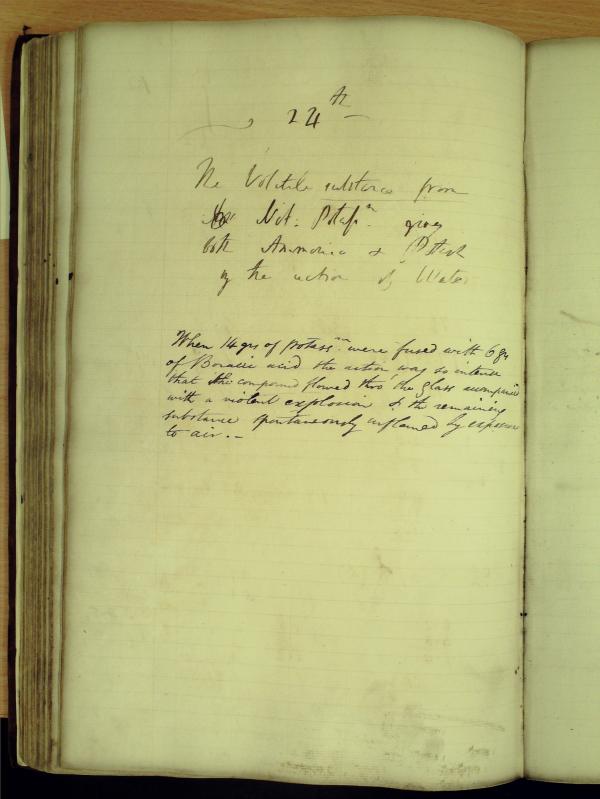 24th
The Volatile substance from
Nit. Potass.m gives
both Ammonia & Potash
by the action of Water
When 14 grs of potass.m were fused with 6 grs
of Boracic acid the action was so intense
that the compound flowed thro' the glass accompanied
with a violent explosion & the remaining
substance spontaneously inflamed by exposure
to air. –